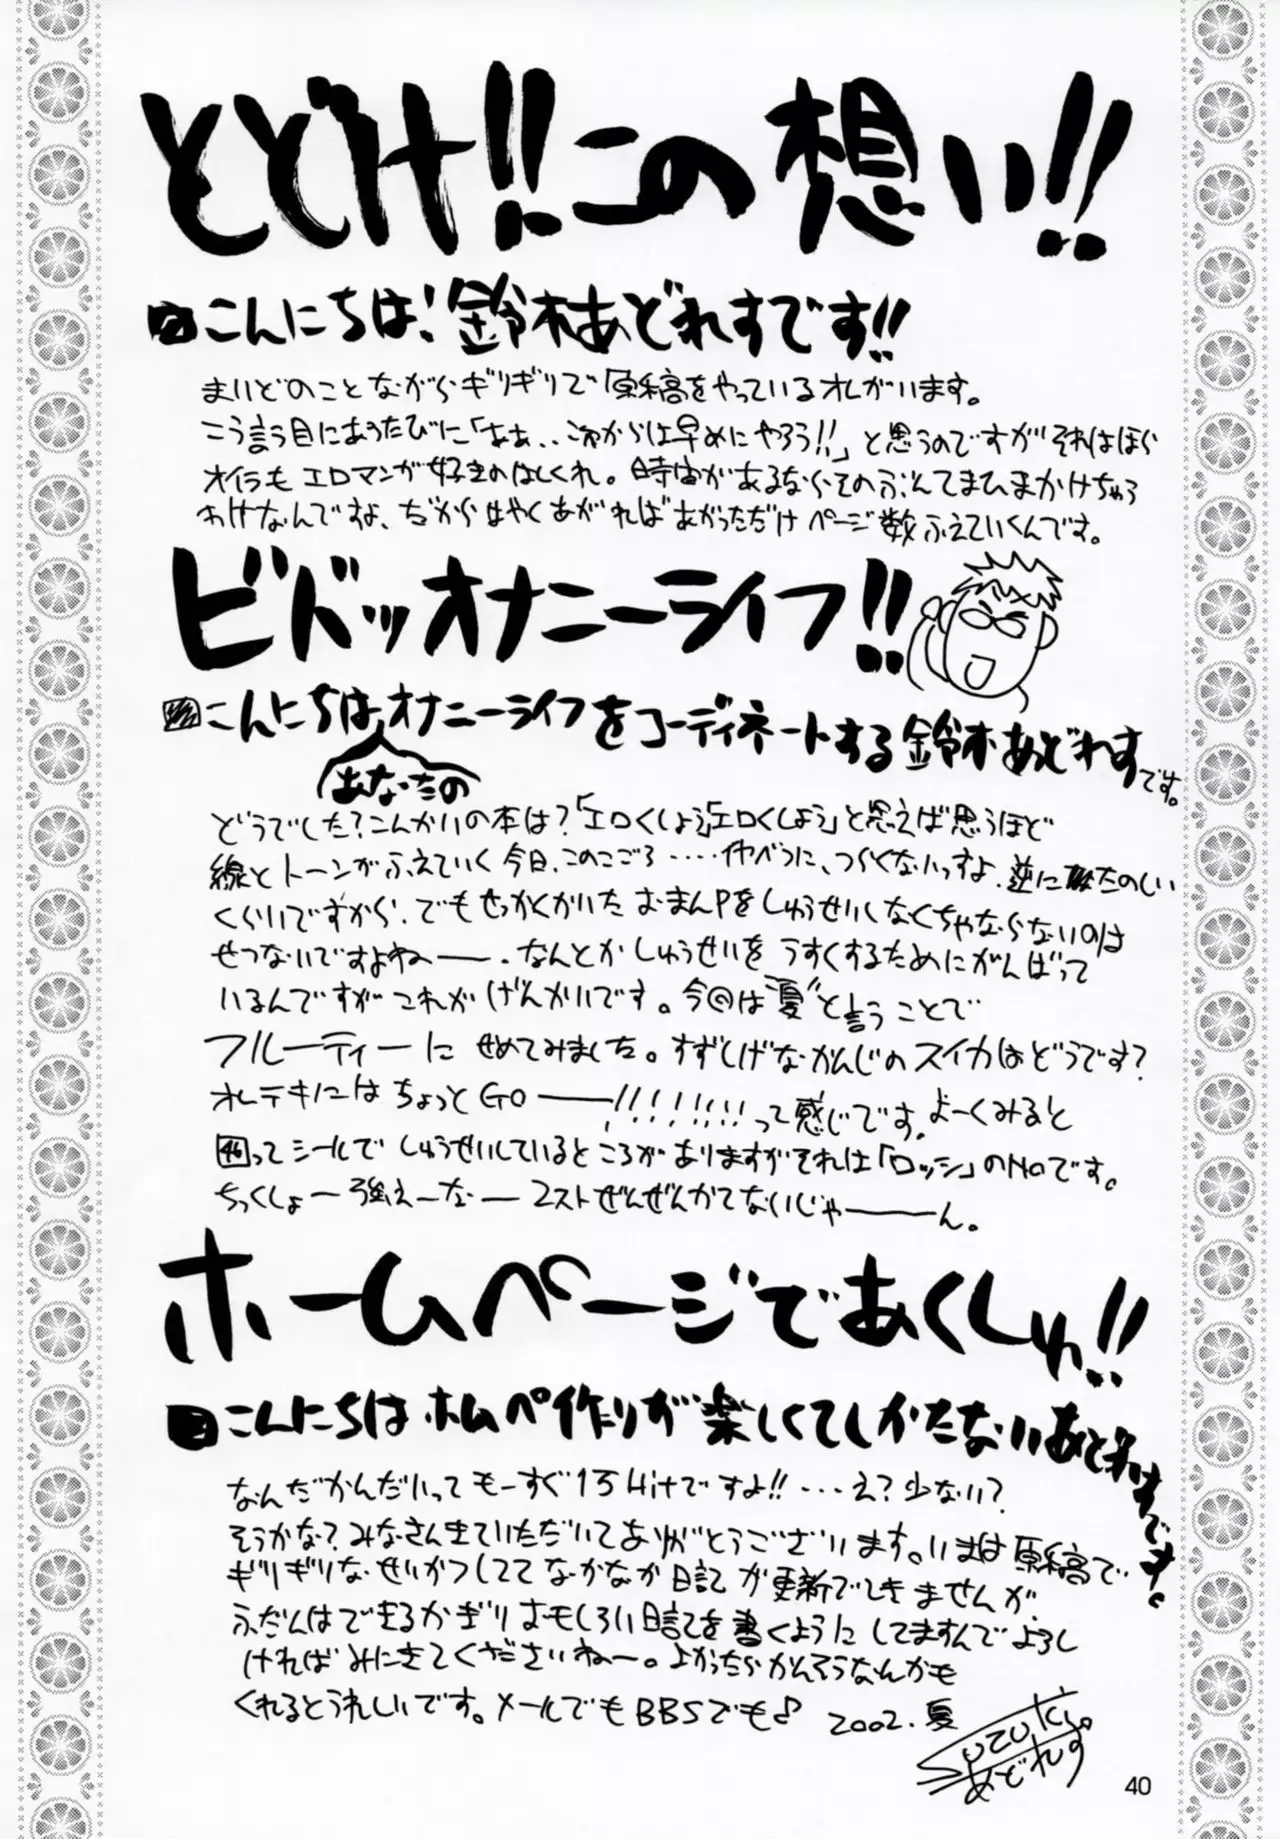 とどけ!!この想い!!
こんにちは!鈴木あどれすです!!
まいどのことながらギリギリで原稿をやっているオレがいます。
こう言う目にあうたびに「ああ、、これからは早めにやろう!!」と思うのですがそれはほら
オイラもエロマンが好きのはしくれ。時宙があるならそのぶんてまひまかけちゃう
わけなんですよ、だからはやくあがればあがっただけページ数ふえていくんです。
ビバッオナニーライフ!!
こんにちはオナニーライフをコーディネートする鈴木あどれすです。
あなたの
どうでした?こんかいの本は?「エロくしよう」「エロくしよう」と思えば思うほど
線とトーンがふえていく今日、このごろ‥‥‥べつに、つらくないっすよ、逆にたのしい
くらいですから、でもせっかくかいたおまんPをしゅうせいしなくちゃならないのは
せつないですよねー。なんとかしゅうせいをうすくするためにがんばって
いるんですがこれがげんかいです。今回は“夏”と言うことで
フルーティーにせめてみました。すずしげなかんじのスイカはどうです?
オレテキにはちょっとGOー!!!!!!!!って感じです。よーくみると
46ってシールでしゅうせいしているところがありますがそれは「ロッシ」のNoです。
ちっくしょー強えーなー2ストぜんぜんかてないじゃーーん。
ホームページであくしゅ!!
こんにちはホムペ作りが楽しくてしかたないあどれすです。
なんだかんだいってもーすぐ1万Hitですよ!!‥‥え?少ない?
そうかな?みなさんきていただいてありがとうございます。いまは原稿で
ギリギリなせいかつしててなかなか日記が更新できませんが
ふだんはできるかぎりおもしろい日記を書くようにしてますんでよろし
ければみにきてくださいねー。よかったらかんそうなんかも
くれるとうれしいです。メールでもBBSでも♪ 2002.夏
Suzuki
あどれす
40